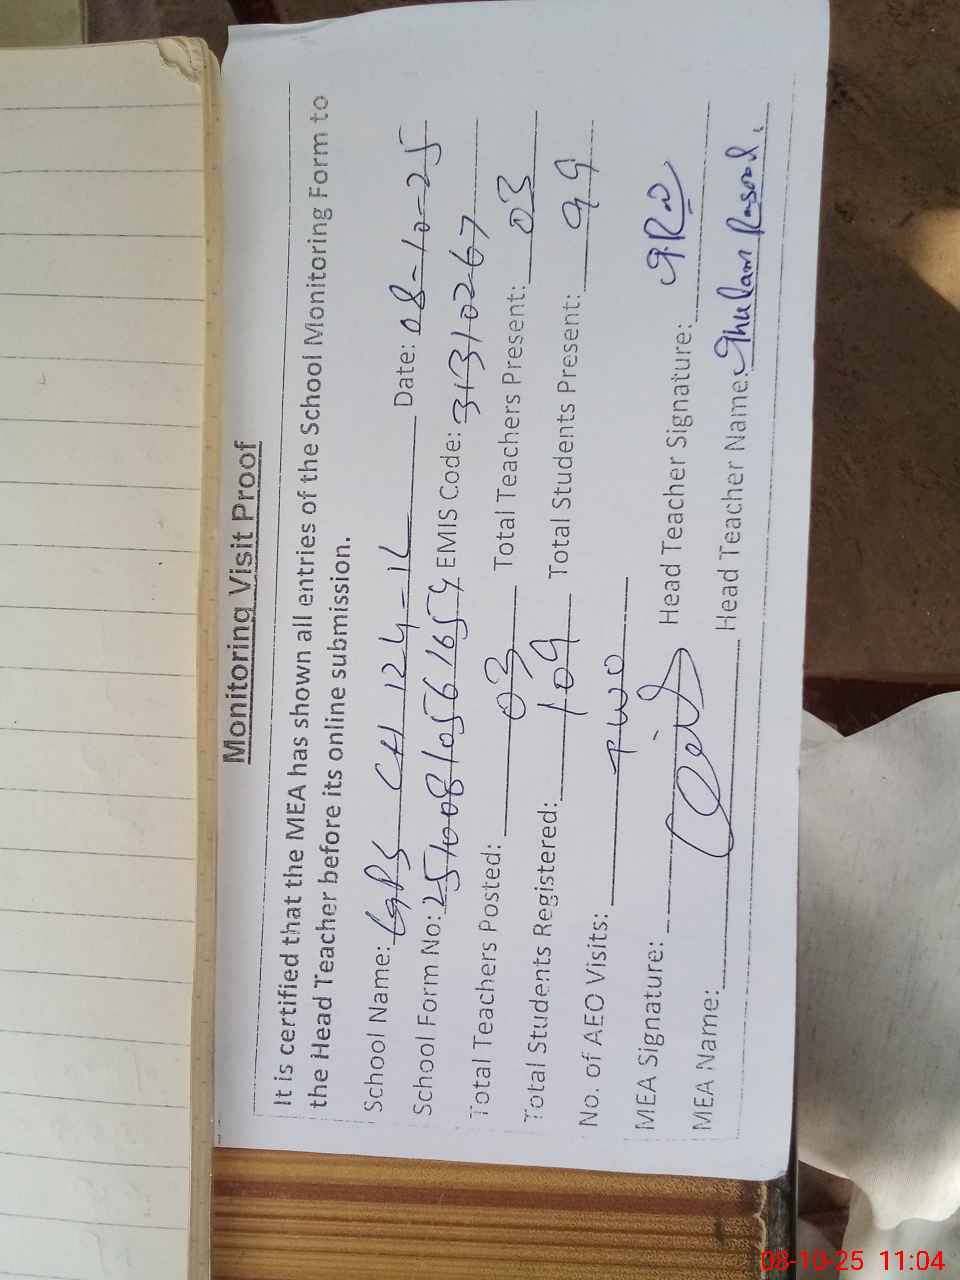 Monitoring Visit Proof
It is certified that the MEA has shown all entries of the School Monitoring Form to
the Head Teacher before its online submission.
School Name: GPS CH 124-1L Date: 08-10-25
School Form No: 25100810561654 EMIS Code: 31310267
Total Teachers Posted: 03 Total Teachers Present: 03
Total Students Registered: 109 Total Students Present: 99
No. of AEO Visits: TWO
MEA Signature: Head Teacher Signature:
MEA Name: Head Teacher Name: Ghulam Rasool.
08-10-25 11:04